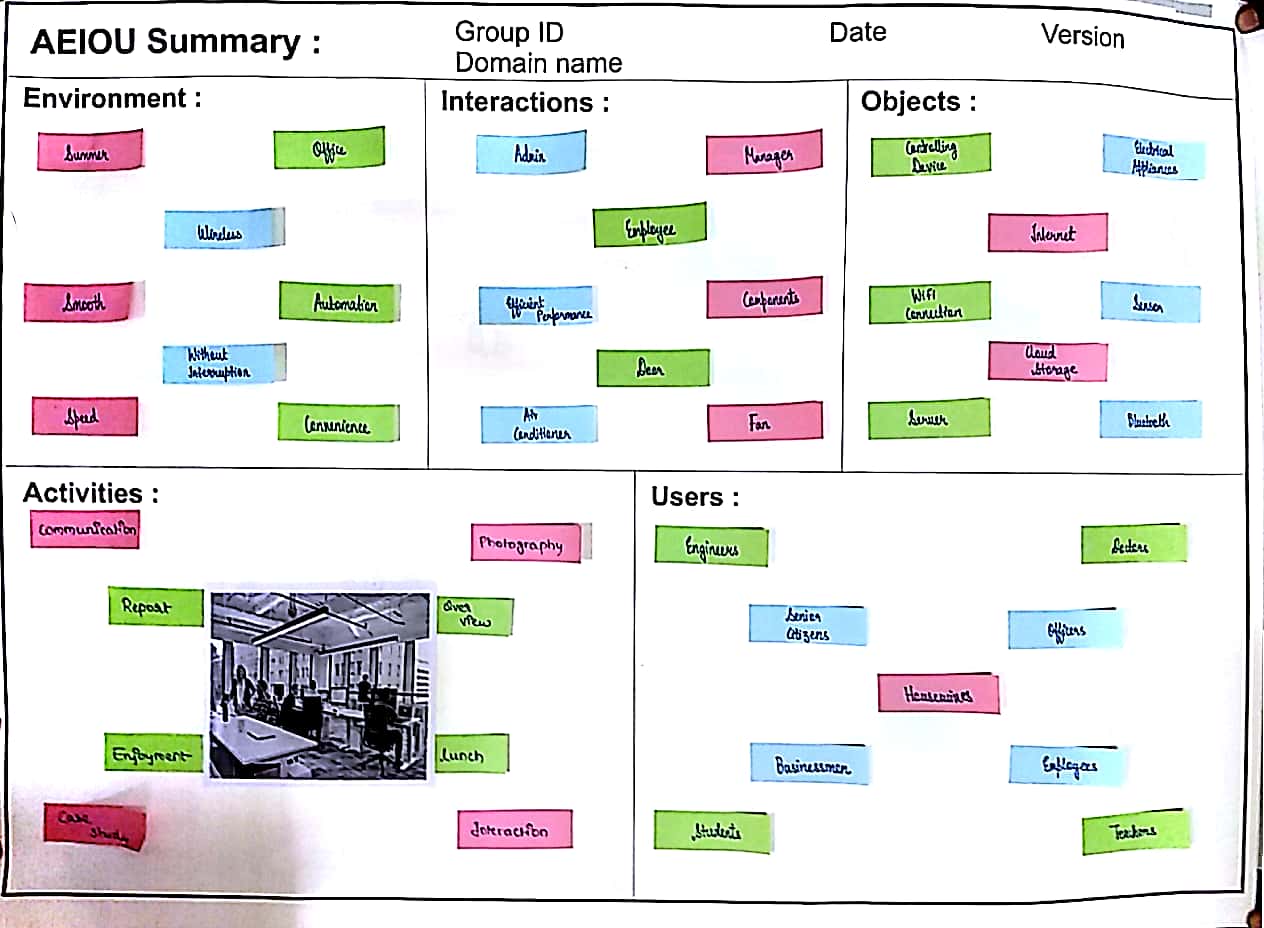 AEIOU Summary :
Group ID
Domain name
Date
Version
Environment :
Summer
Office
Wireless
Smooth
Automation
Without
Interruption
Speed
Convenience
Interactions :
Admin
Manager
Employee
Efficient
Performance
Components
Door
Air
Conditioner
Fan
Objects :
Controlling
Device
Electrical
Appliances
Internet
WiFi
Connection
Sensor
Cloud
Storage
Server
Bluetooth
Activities :
Communication
Photography
Report
Over
view
Enjoyment
Lunch
Case
Study
Interaction
Users :
Engineers
Doctors
Senior
Citizens
Officers
Housewives
Businessmen
Employees
Students
Teachers